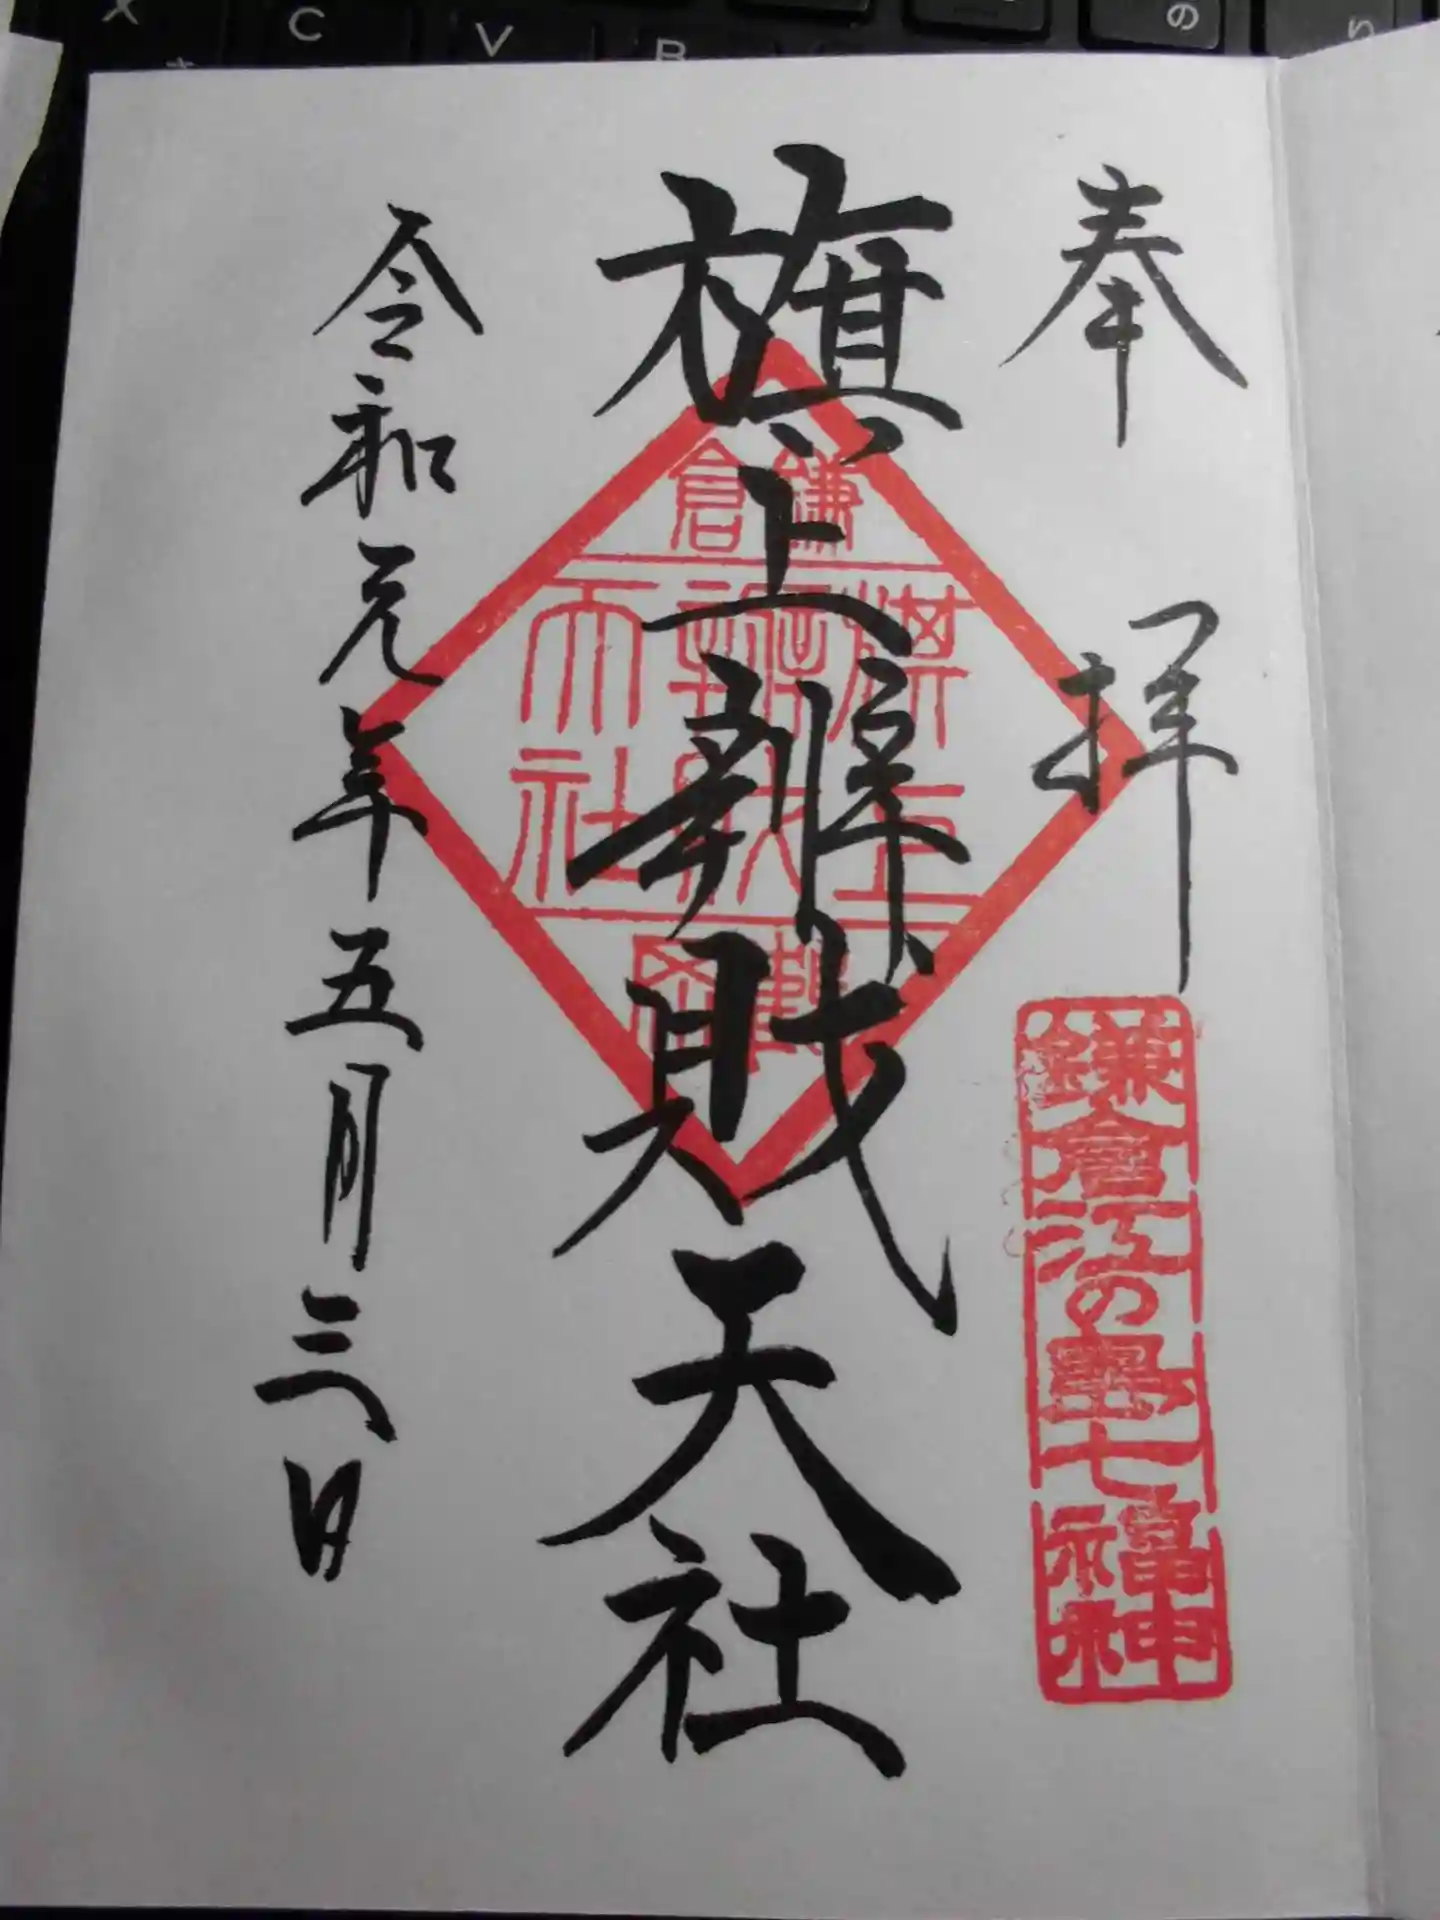 奉拝
鎌倉江の島七福神
旗上辨財天社
鎌倉
旗上
辨財
天社
令和元年五月三日
C
V
B
の